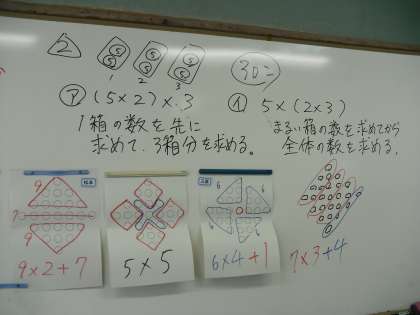 2
5 5 5
5 5 5
1 2 3
30こ
㋐ (5×2)×3
1箱の数を先に
求めて、3箱分を求める。
㋑ 5×(2×3)
まるい箱の数を求めてから
全体の数を求める。
9
7
9
9×2+7
5×5
6 6
6 6
6×4+1
7×3+4